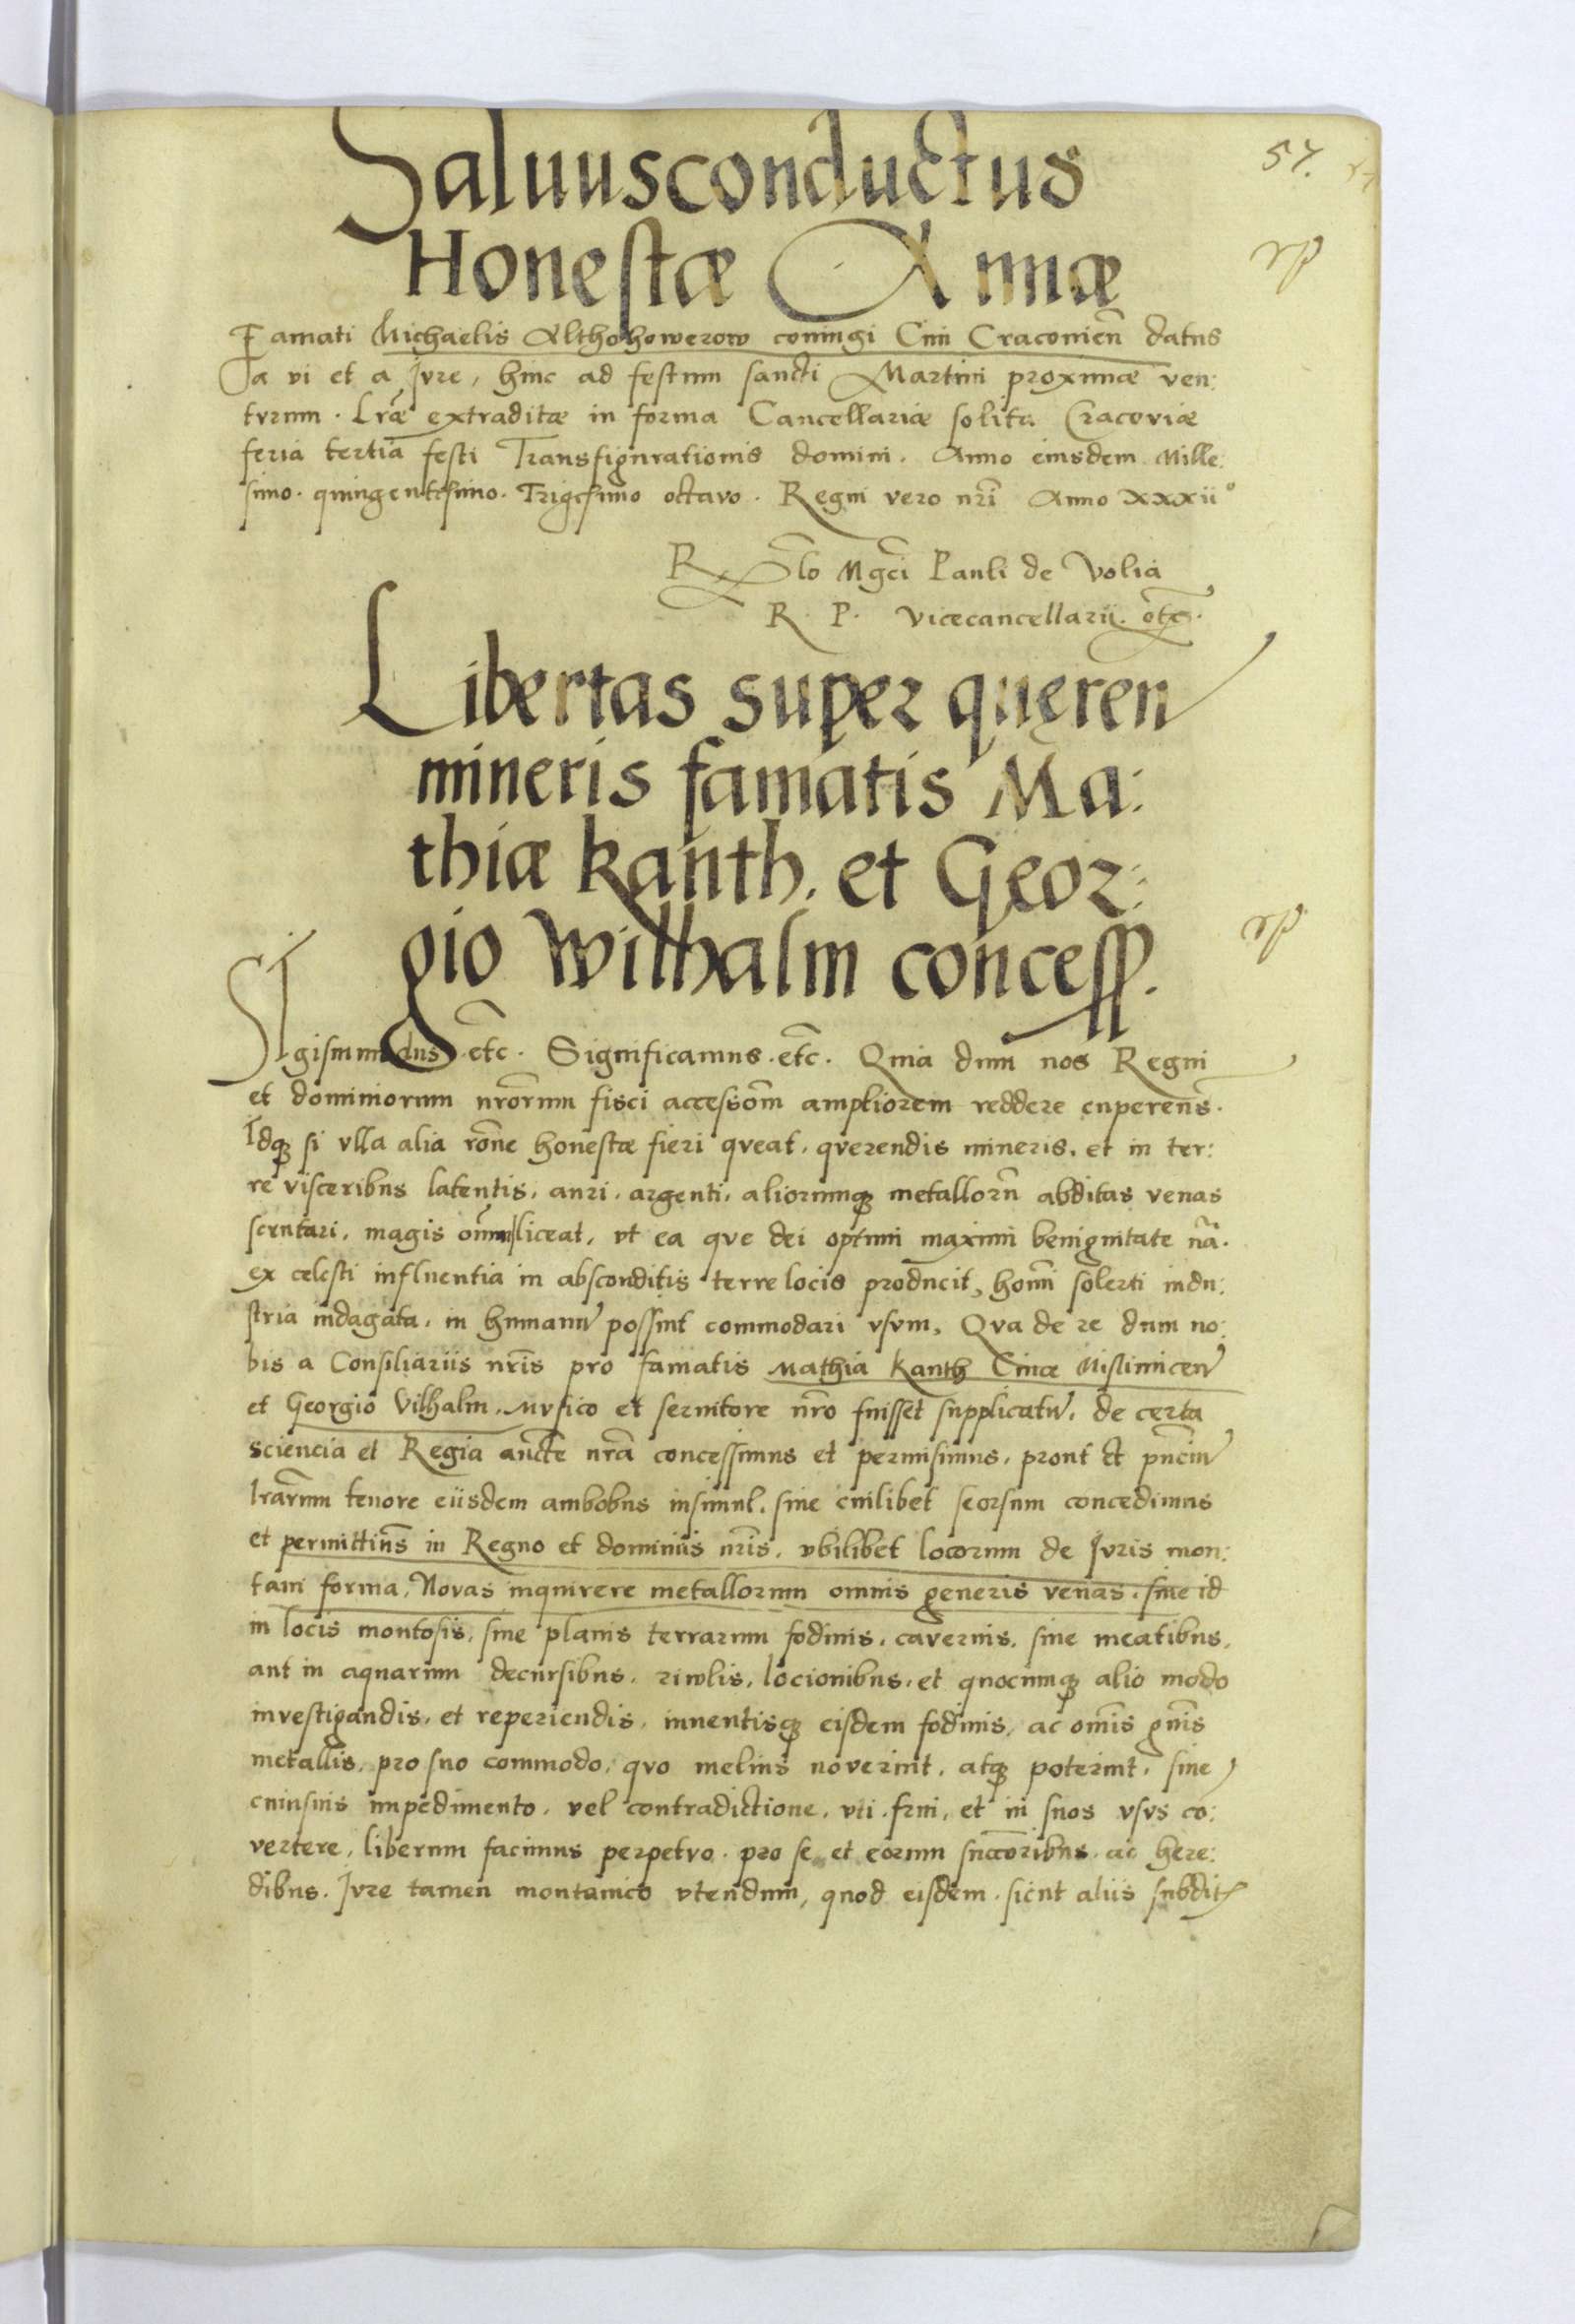 Saluusconductus
57.
Honestæ Annæ
rp
Famati Michaelis Althohowerow coniugi Ciui Cracouien̄ datus
a vi et a Jvre, hinc ad festum sancti Martini proximæ ven:
tvrum. Lr̄æ extraditæ in forma Cancellariæ solita Cracoviæ
feria tertia festi Transfigurationis domini. Anno eiusdem Mille:
simo. quingentesimo. Trigesimo octavo. Regni vero nr̄i Anno xxxii°
R̄lo Mgc̄i Pauli de Volia
R. P. vicecancellarii. etc̄.
Libertas super queren
mineris famatis Ma:
thiæ Kanth. et Geor:
gio Wilhalm concess.
rp
SIgismundus .etc̄. Significamus .etc̄. Quia dum nos Regni
et dominiorum nrōrum fisci accessom̄ ampliorem reddere cuperem̄s.
Idqꝫ si vlla alia rōne honestæ fieri qveat. qverendis mineris. et in ter:
re visceribus latentis. auri. argenti. aliorumqꝫ metallorū abditas venas
scrutari. magis om̄nī liceat, vt ea qve dei optimi maximi benignitate nā.
ex celesti influentia in absconditis terre locis producit, homī solerti indu:
stria indagata. in humanū possint commodari vsvm, Qva de re dum no:
bis a Consiliariis nr̄is pro famatis Mathia Kanth Ciuæ Mislimicen
et Georgio Vilhalm. Mvsico et seruitore nr̄o fuisset supplicatū. de certa
sciencia et Regia auc̄te nrā concessimus et permisimus, prout et pn̄ciū
lrārum tenore eiisdem ambobus insimul. siue cuilibet seorsum concedimus
et permittim̄s in Regno et dominiis nr̄is. vbilibet locorum de Jvris mon:
tani forma. Novas inquirere metallorum omnis generis venas. siue id
in locis montosis. siue planis terrarum fodinis. cavernis. siue meatibus.
aut in aquarum decursibus. riwlis. locionibus. et quocumqꝫ alio modo
investigandis. et reperiendis. inuentisqꝫ eisdem fodinis. ac om̄is gn̄is
metallis. pro suo commodo. qvo melius noverint. atqꝫ poterint. sine
cuiusuis impedimento. vel contradictione. vti. frui, et in suos vsvs co:
vertere, liberum facimus perpetvo. pro se et eorum succ̄oribus. ac here:
dibus. Jvre tamen montanico vtendum, quod eisdem. sicut aliis subdit